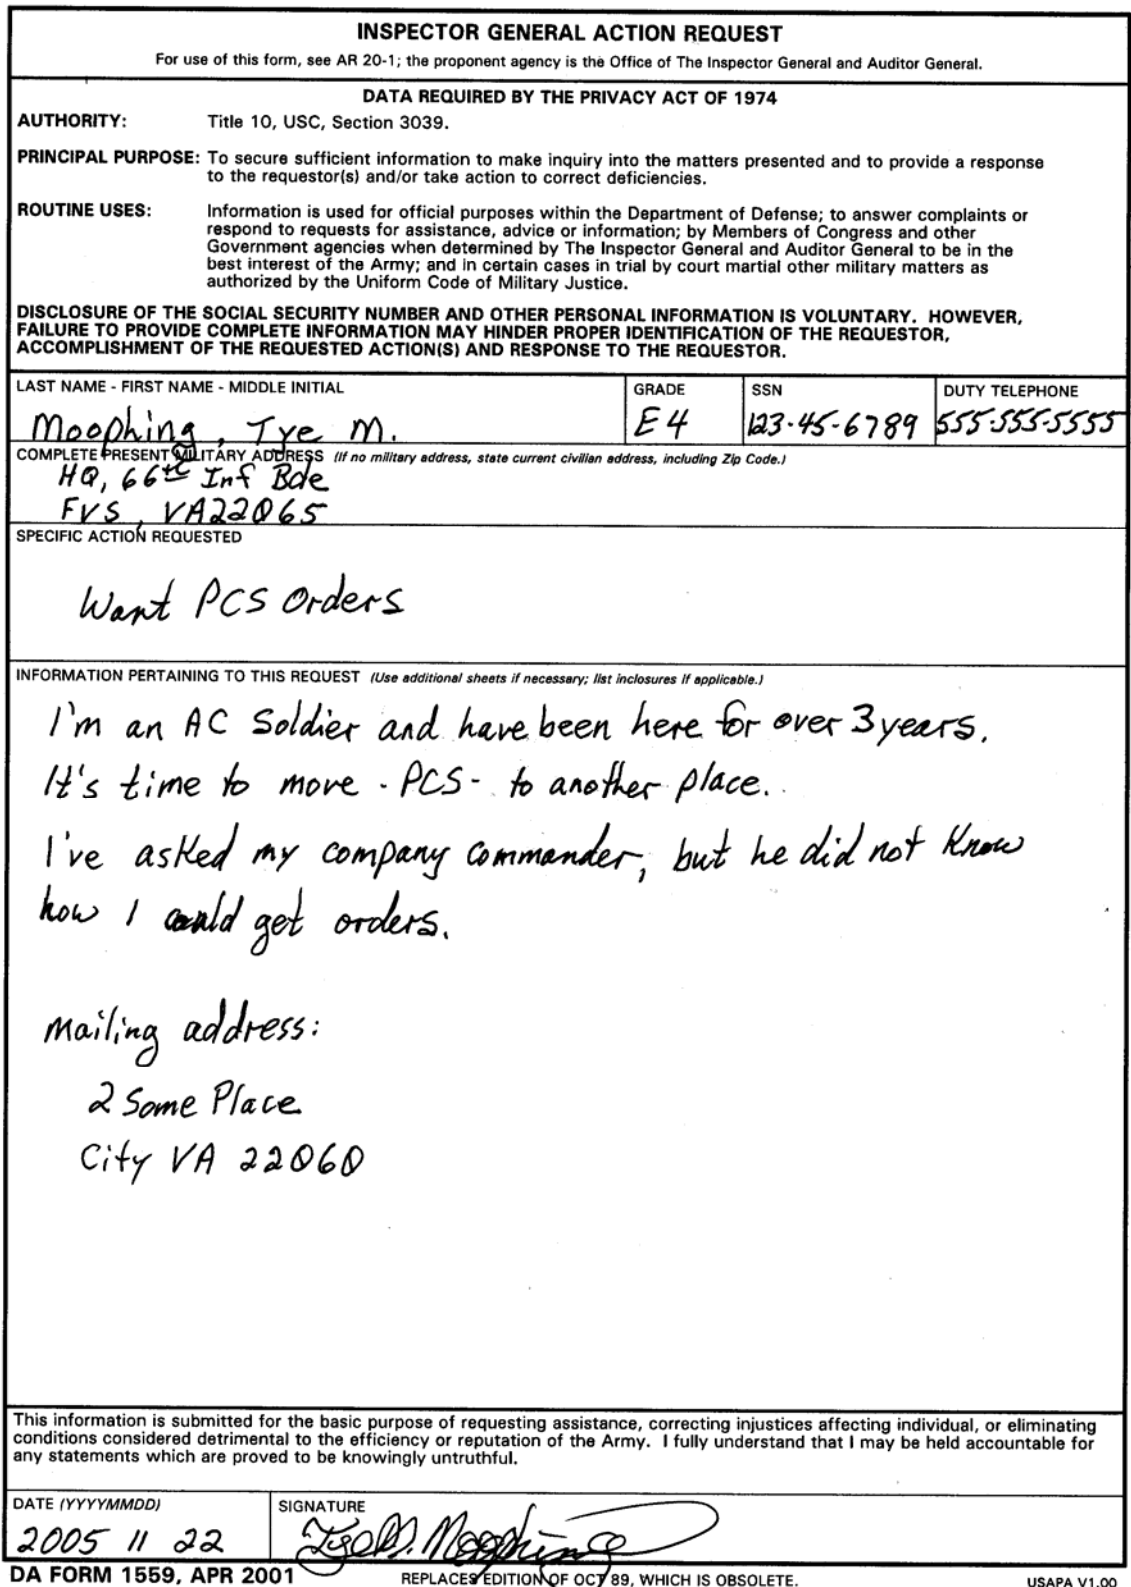 INSPECTOR GENERAL ACTION REQUEST
For use of this form, see AR 20-1; the proponent agency is the Office of The Inspector General and Auditor General.
DATA REQUIRED BY THE PRIVACY ACT OF 1974
AUTHORITY: Title 10, USC, Section 3039.
PRINCIPAL PURPOSE: To secure sufficient information to make inquiry into the matters presented and to provide a response
to the requestor(s) and/or take action to correct deficiencies.
ROUTINE USES: Information is used for official purposes within the Department of Defense; to answer complaints or
respond to requests for assistance, advice or information; by Members of Congress and other
Government agencies when determined by The Inspector General and Auditor General to be in the
best interest of the Army; and in certain cases in trial by court martial other military matters as
authorized by the Uniform Code of Military Justice.
DISCLOSURE OF THE SOCIAL SECURITY NUMBER AND OTHER PERSONAL INFORMATION IS VOLUNTARY. HOWEVER,
FAILURE TO PROVIDE COMPLETE INFORMATION MAY HINDER PROPER IDENTIFICATION OF THE REQUESTOR,
ACCOMPLISHMENT OF THE REQUESTED ACTION(S) AND RESPONSE TO THE REQUESTOR.
LAST NAME - FIRST NAME - MIDDLE INITIAL
Moophing, Tye M.
GRADE
E4
SSN
123-45-6789
DUTY TELEPHONE
555-555-5555
COMPLETE PRESENT MILITARY ADDRESS (If no military address, state current civilian address, including Zip Code.)
HQ, 66th Inf Bde
FVS, VA 22065
SPECIFIC ACTION REQUESTED
Want PCS Orders
INFORMATION PERTAINING TO THIS REQUEST (Use additional sheets if necessary; list inclosures if applicable.)
I'm an AC Soldier and have been here for over 3 years.
It's time to move - PCS - to another place.
I've asked my company commander, but he did not know
how I could get orders.
Mailing address:
2 Some Place
City VA 22060
This information is submitted for the basic purpose of requesting assistance, correcting injustices affecting individual, or eliminating
conditions considered detrimental to the efficiency or reputation of the Army. I fully understand that I may be held accountable for
any statements which are proved to be knowingly untruthful.
DATE (YYYYMMDD)
2005 11 22
SIGNATURE
Tye M. Moophing
DA FORM 1559, APR 2001
REPLACES EDITION OF OCT 89, WHICH IS OBSOLETE.
USAPA V1.00